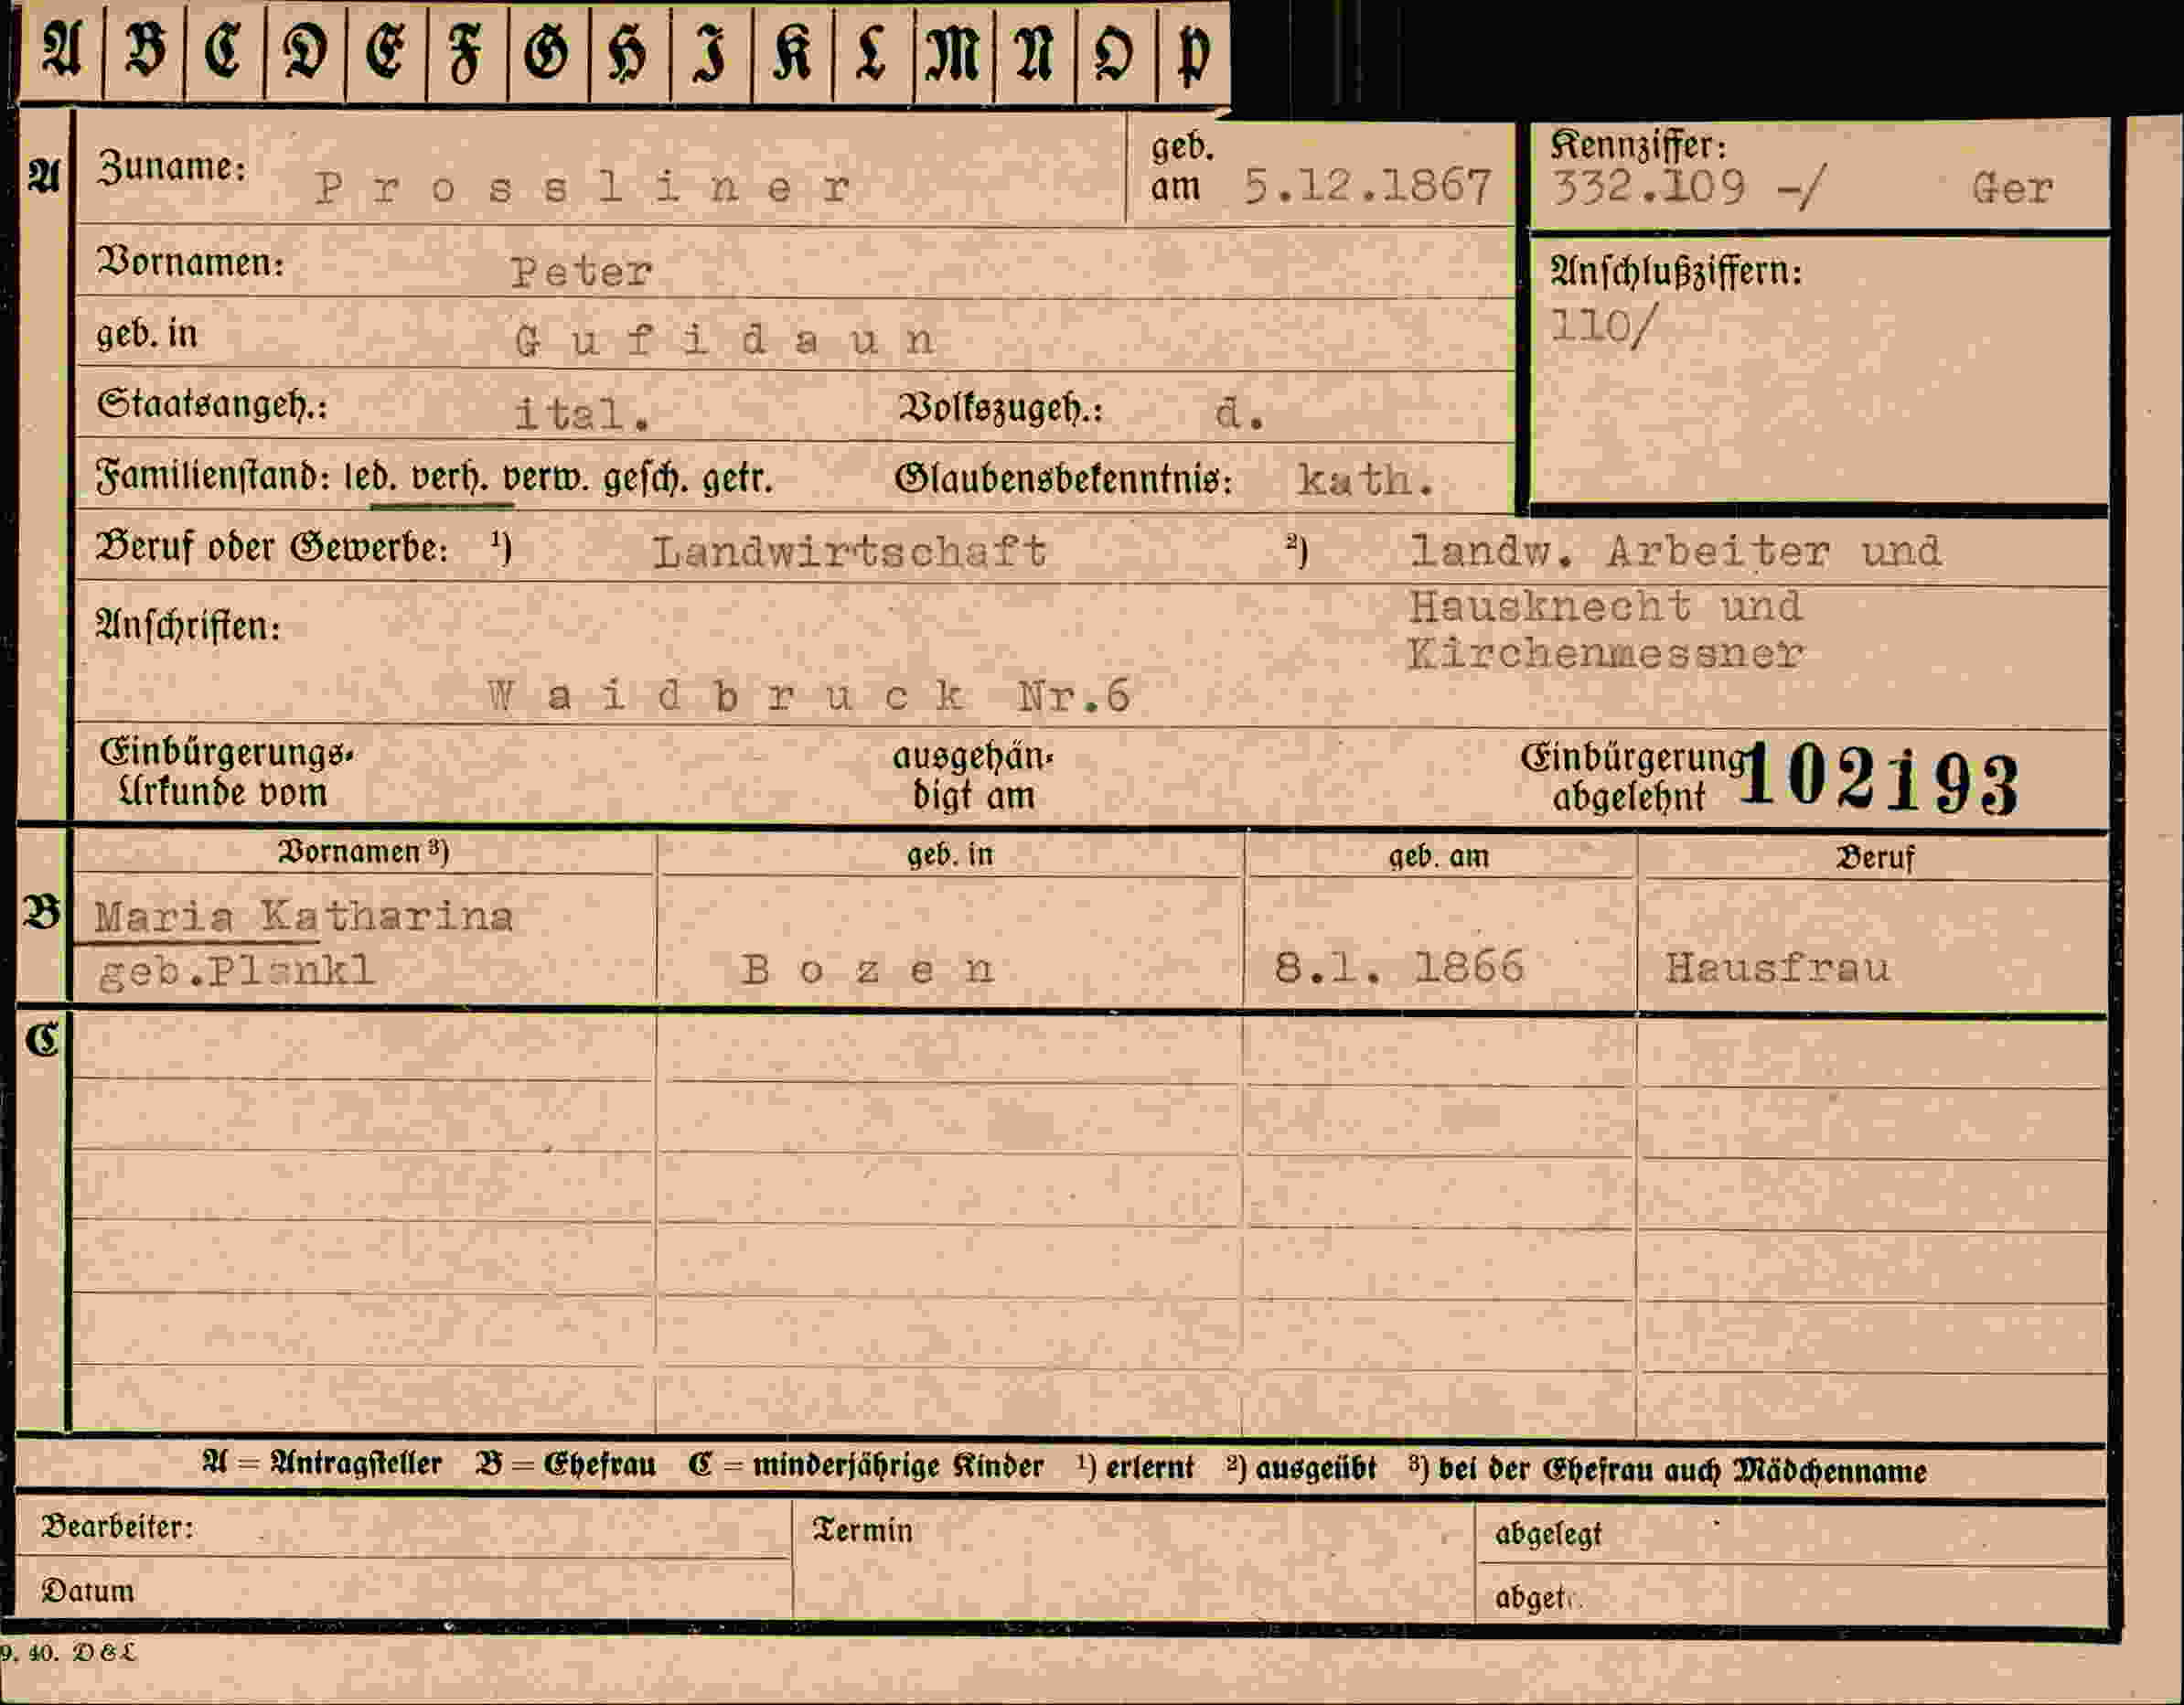 A B C D E F G H I K L M N O P
A Zuname: Prossliner geb. am 5.12.1867 Kennziffer: 332.109 -/ Ger
Vornamen: Peter Anschlußziffern:
geb. in Gufidaun 110/
Staatsangeh.: ital. Volkszugeh.: d.
Familienstand: led. verh. verw. gesch. getr. Glaubensbekenntnis: kath.
Beruf oder Gewerbe: ¹) Landwirtschaft ²) landw. Arbeiter und
Hausknecht und
Anschriften:
Kirchenmessner
Waidbruck Nr.6
Einbürgerungs-
Urkunde vom
ausgehän-
digt am
Einbürgerung
abgelehnt
102193
Vornamen ³) geb. in geb. am Beruf
B Maria Katharina
geb.Plankl Bozen 8.1. 1866 Hausfrau
C
A = Antragsteller B = Ehefrau C = minderjährige Kinder ¹) erlernt ²) ausgeübt ³) bei der Ehefrau auch Mädchenname
Bearbeiter: Termin abgelegt
Datum abget.
9. 40. D & L